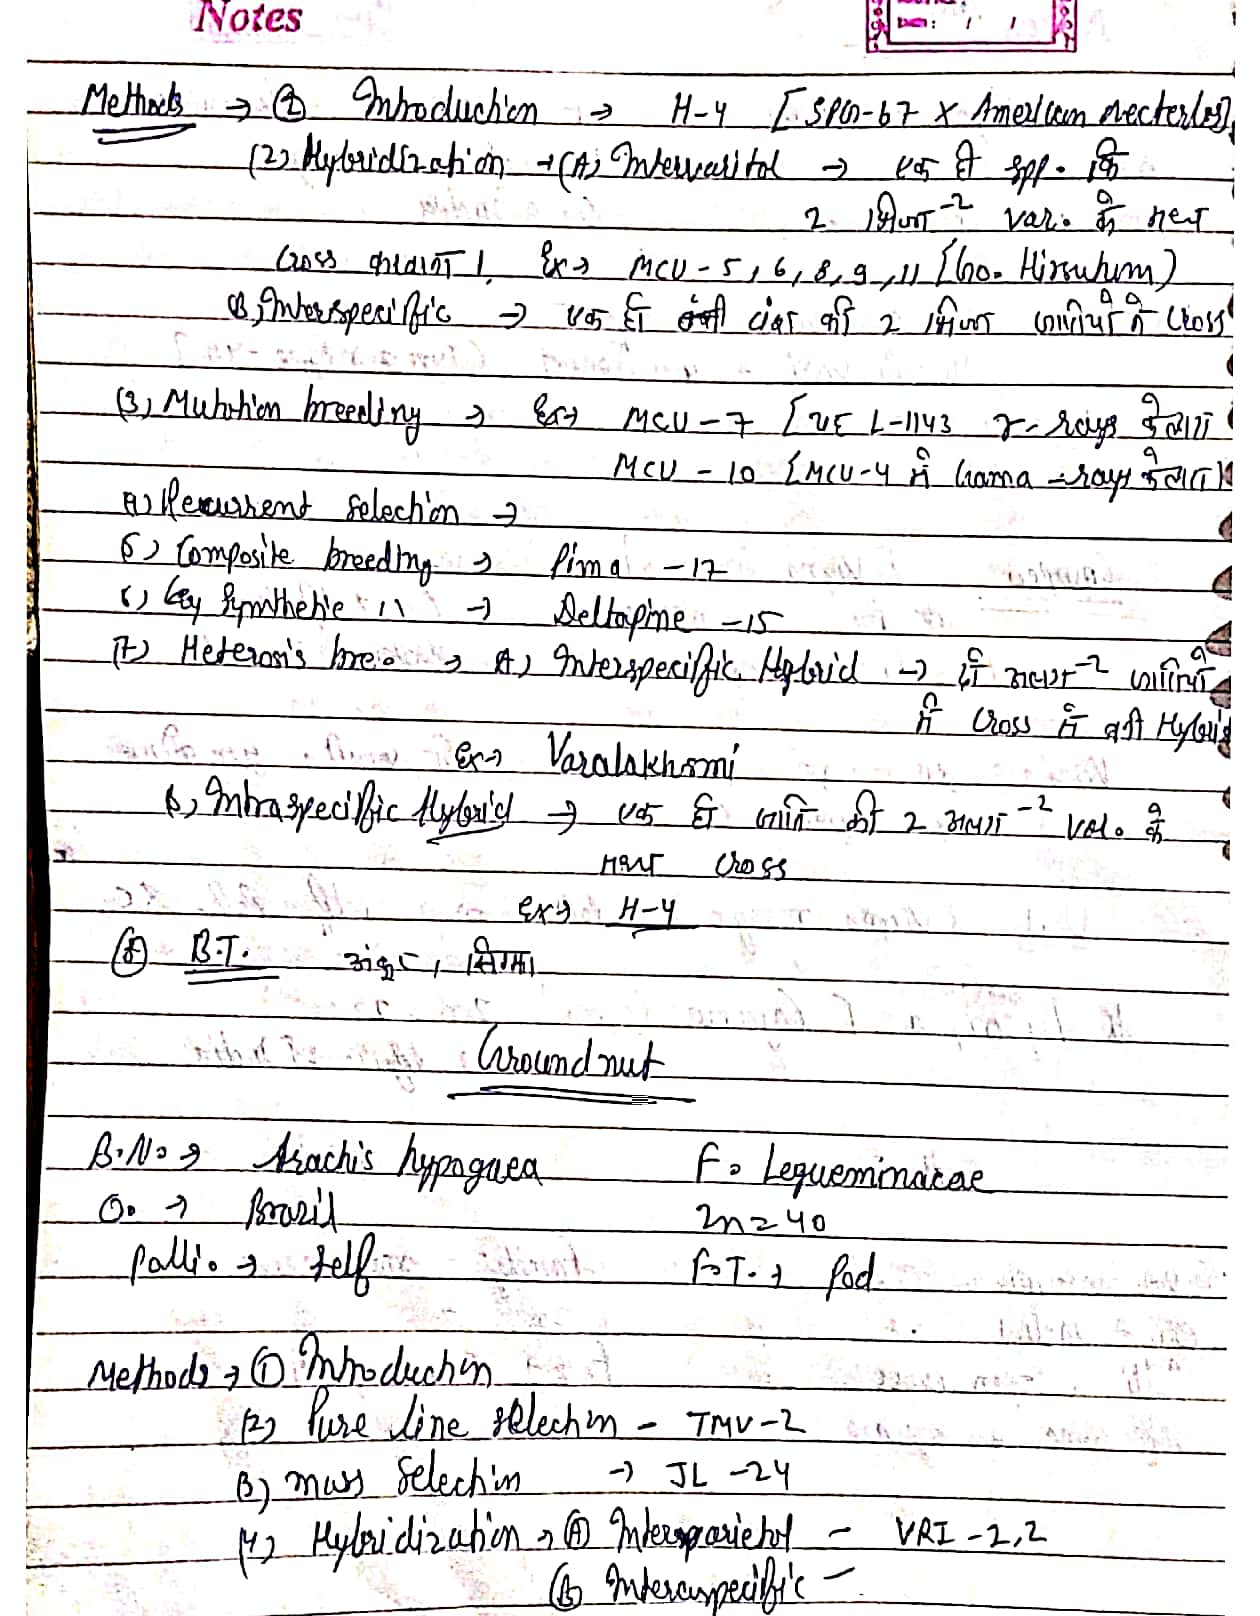 Notes
Methods → ① Introduction → H-4 [ × American nectarless]
(2) Hybridization → (A) Intervarital → एक ही spp. कि
2 भिन्न-2 var. के मध्य
Cross करवाना। Ex→ MCU-5, 6, 8, 9, 11 [Go. Hirsutum)
(B) Interspecific → एक ही वंश की 2 भिन्न जातियों में Cross
(3) Mutation breeding → Ex→ MCU-7 [ L-1143 γ-rays के द्वारा
MCU-10 [MCU-4 में Gama-rays के द्वारा]
Recurrent Selection →
5) Composite breeding → Pima-17
6) Synthetic 11 → Deltapine-15
(7) Heterosis bre. → A) Interspecific Hybrid → दो अलग-2 जातियों
में Cross में बनी Hybrid
Ex→ Varalakhsmi
B) Intraspecific Hybrid → एक ही जाति की 2 अलग-2 var. के
मध्य Cross
Ex→ H-4
⑧ B.T. अंकुर, सिग्मा
Groundnut
B.N. → Arachis hypogaea F. Legueminacae
O. → Brazil 2n=40
Polli. → Self F.T. → Pod
Methods → ① Introduction
(2) Pure line selection - TMV-2
(3) mass Selection → JL-24
(4) Hybridization → Ⓐ - VRI-2,2
Ⓑ -